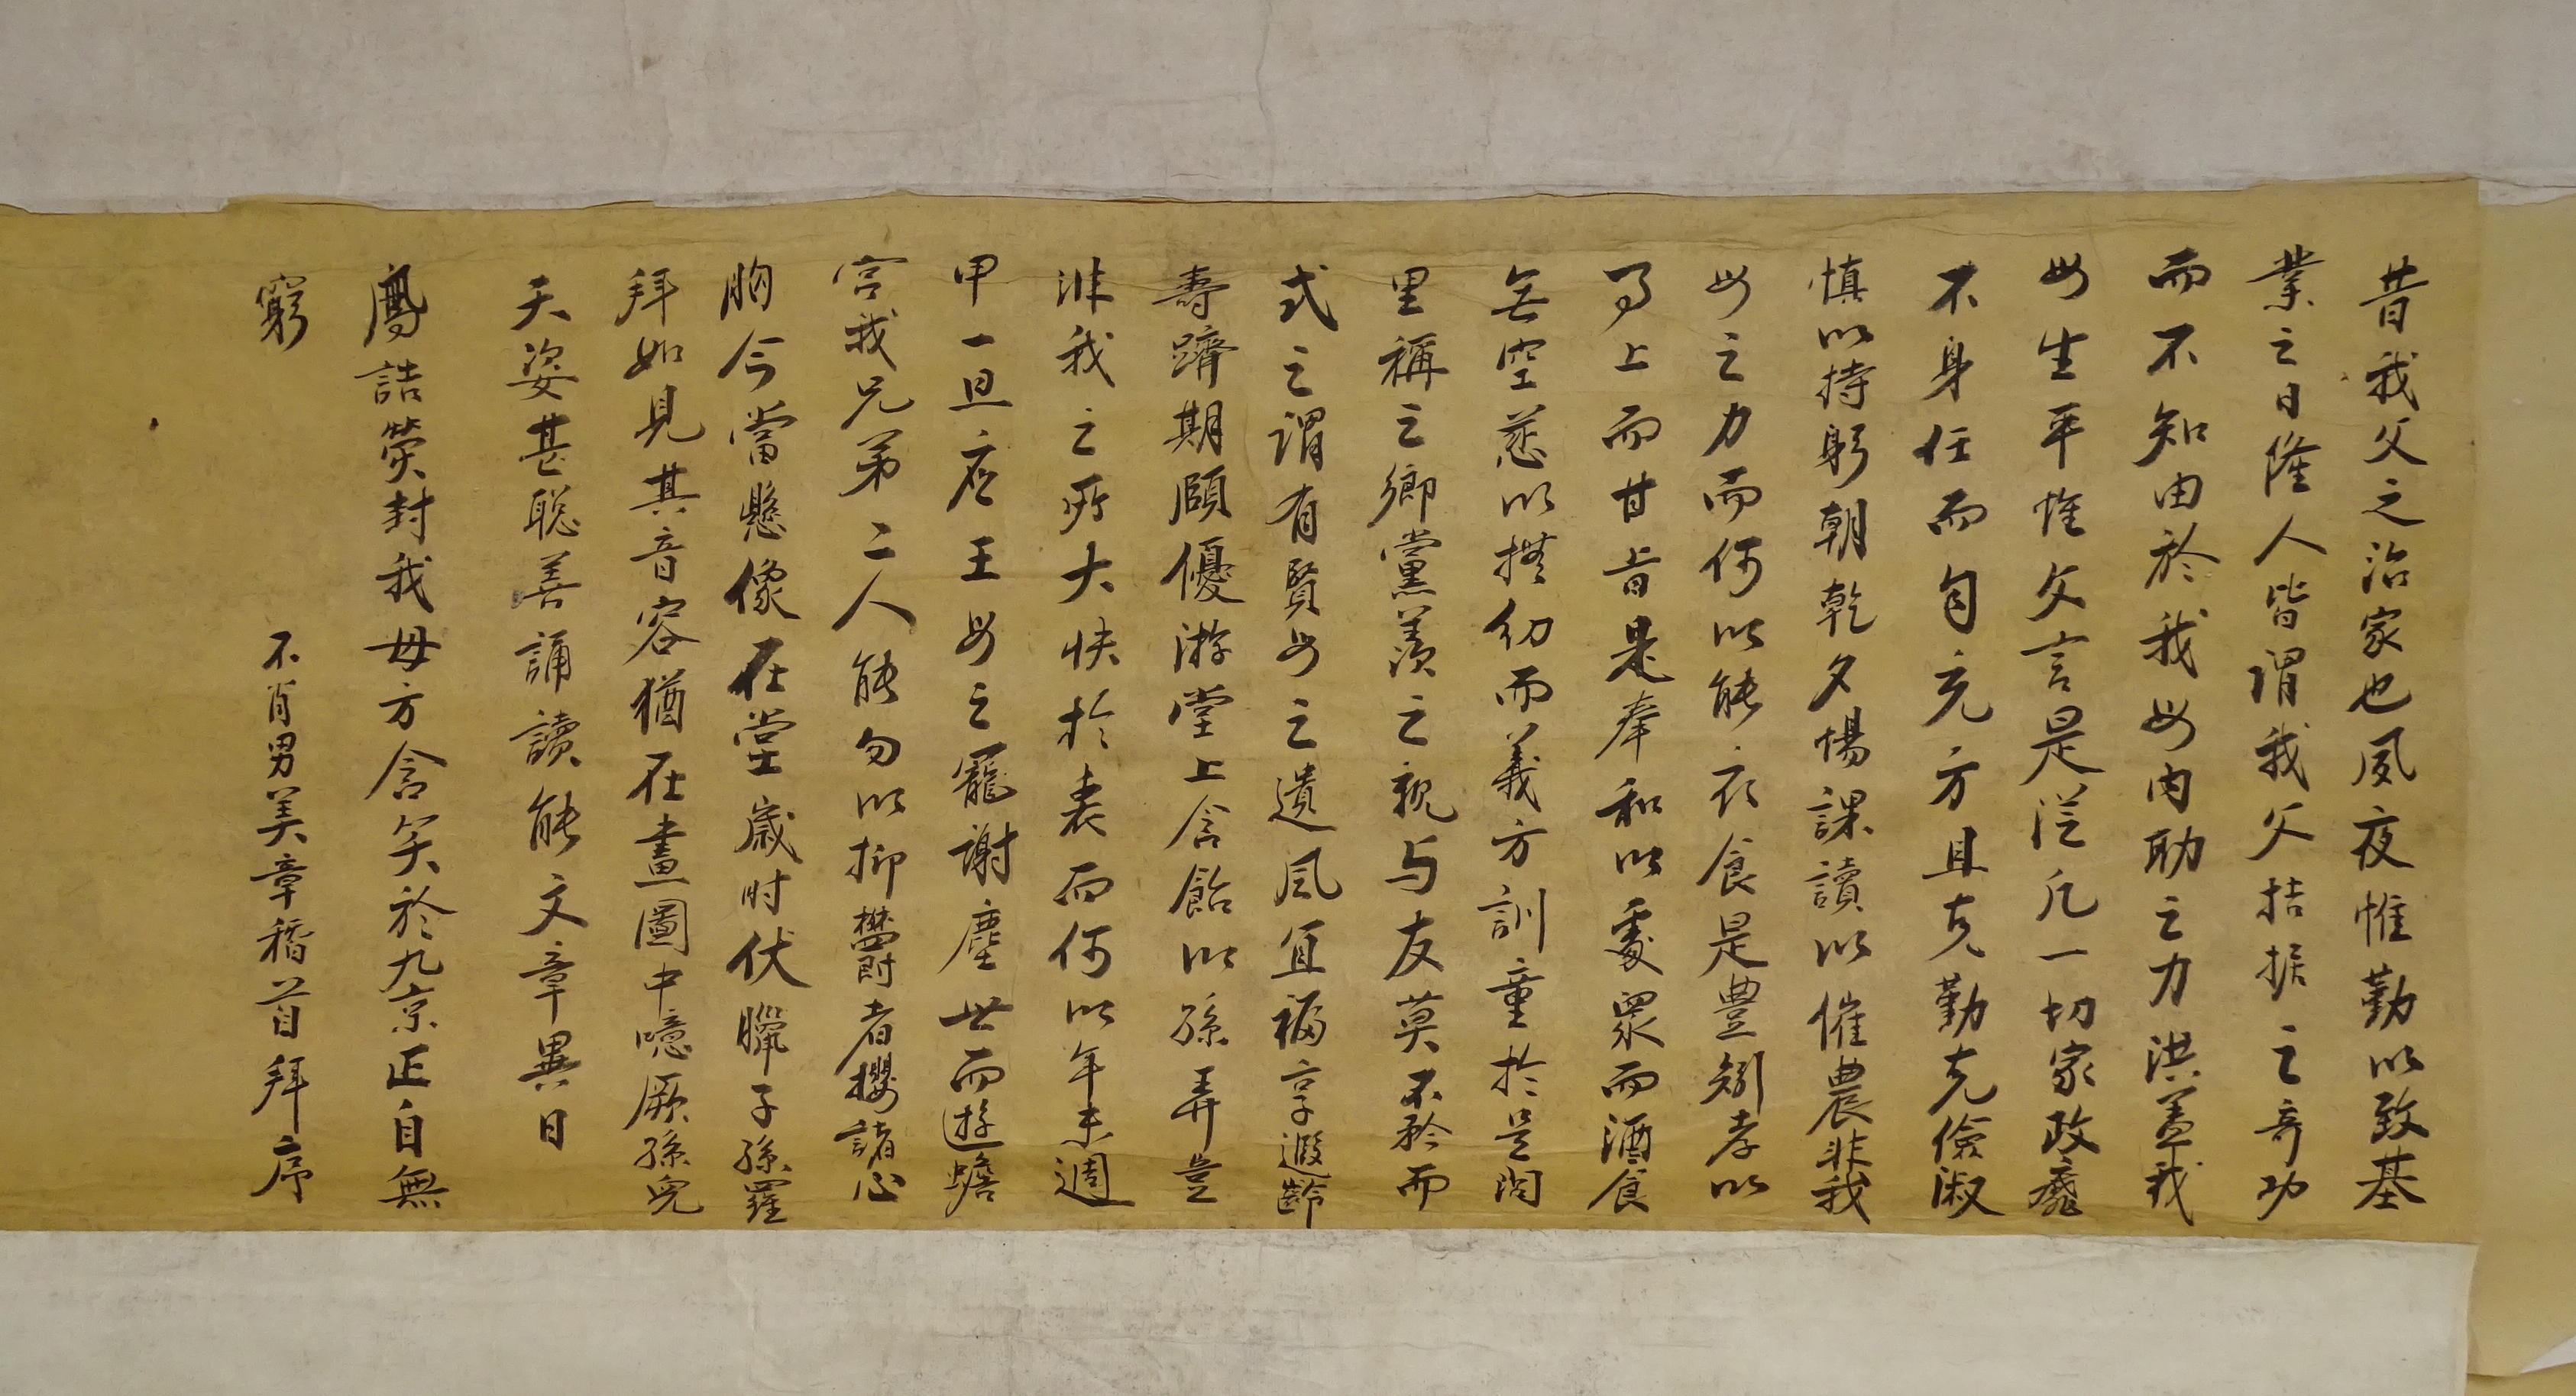 昔我父之治家也夙夜惟勤以致基
業之日隆人皆謂我父拮据之奇功
而不知由於我母內助之力洪蓋我
母生平惟父言是從凡一切家政靡
不身任而自克方且克勤克儉淑
慎以持躬朝乾夕惕課讀以催農非我
母之力而何以能衣食是豊矧孝以
事上而甘旨是奉和以處眾而酒食
無空慈以撫幼而義方訓童於是閭
里稱之鄉黨羨之親与友莫不矜而
式之謂有賢母之遺風宜福享遐齡
壽躋期頤優游堂上含飴以孫弄豈
非我之所大快於衷而何以年未週
甲一旦應王母之寵謝塵世而遊蟾
宮我兄弟二人能勿以抑欝者攖諸心
胸今當懸像在堂歲时伏臘子孫羅
拜如見其音容猶在畫圖中噫厥孫兒
天姿甚聪善誦讀能文章異日
鳳誥榮封我母方含笑於九京正自無
窮
不肖男美章稽首拜序